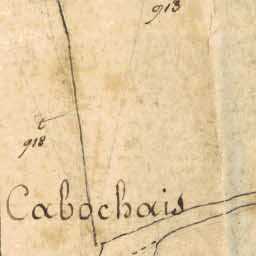 913
t
918
Cabochais